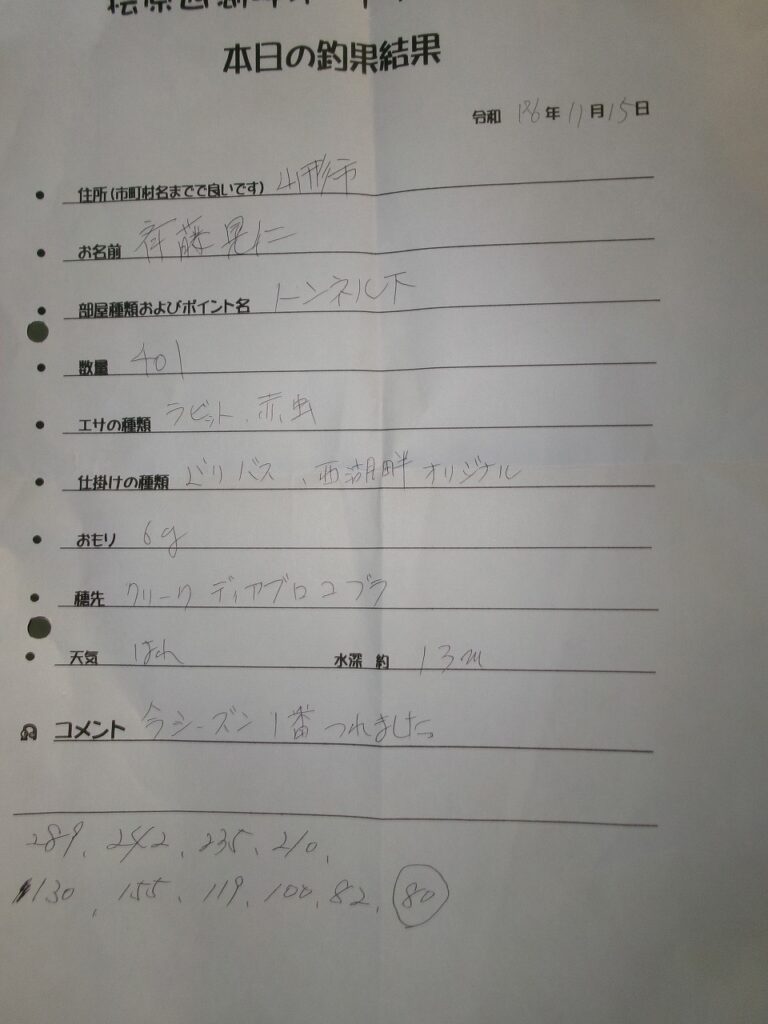 本日の釣果結果
令和 年 11月15日
住所(市町村名までで良いです) 山形市
お名前 斉藤晃仁
部屋種類およびポイント名 トンネル下
数量 401
エサの種類 ラビット、赤虫
仕掛けの種類 バリバス、西湖畔オリジナル
おもり 6g
穂先 クリーク ディアブロコブラ
天気 はれ 水深 約 13m
コメント 今シーズン1番つれました。
289、242、235、210、
130、155、119、100、82、80